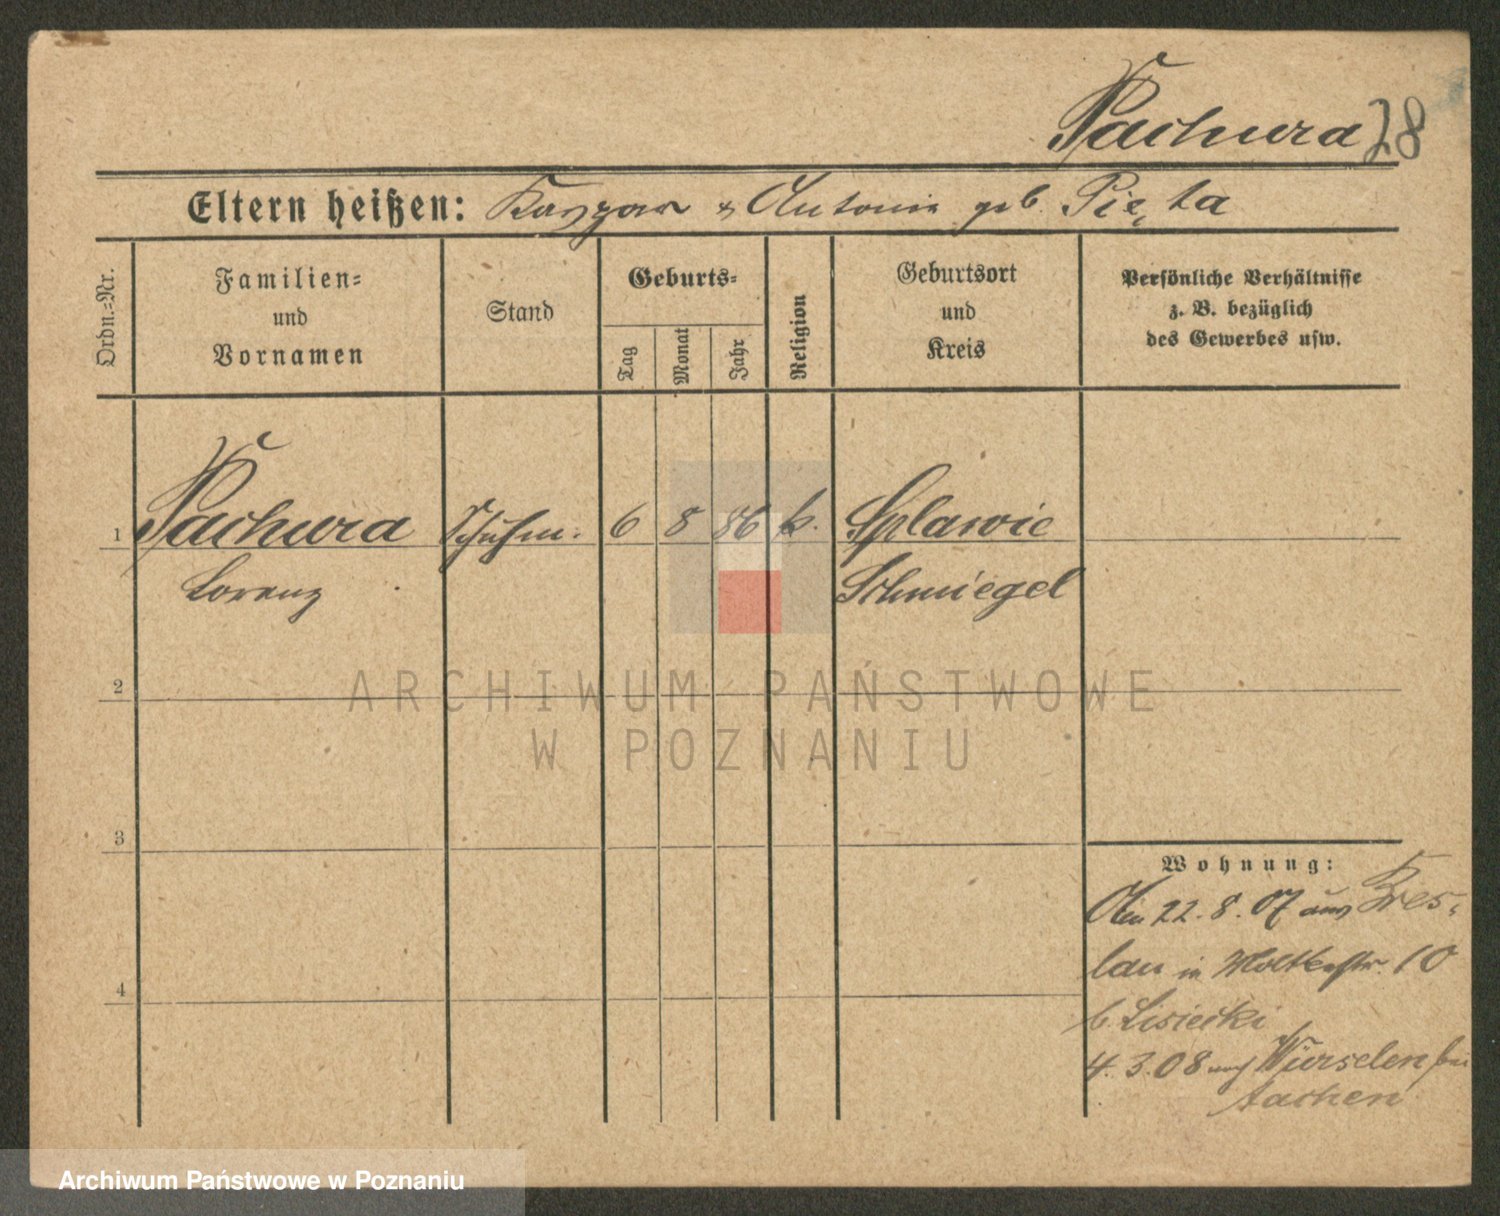 Pachura 28
Eltern heißen: Kaspar & Antonie geb. Pięta
Ordn.=Nr.
Familien=
und
Vornamen
Stand
Geburts=
Tag
Monat
Jahr
Religion
Geburtsort
und
Kreis
Persönliche Verhältnisse
z. B. bezüglich
des Gewerbes usw.
1 Pachura Schuhm. 6 8 86 k. Splawie
Lorenz Schmiegel
2
ARCHIWUM PAŃSTWOWE
W POZNANIU
3
Wohnung:
22.8.07 aus Bres-
lau in Moltkestr. 10
b. Lisiecki
4.3.08 nach Würselen bei
Aachen
4
Archiwum Państwowe w Poznaniu